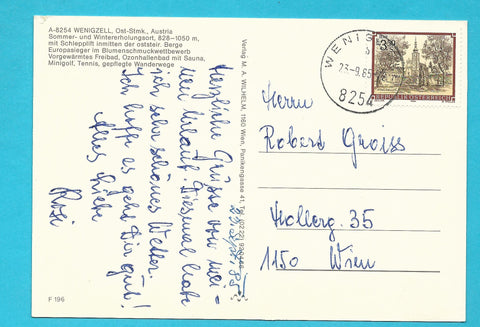 A-8254 WENIGZELL, Ost-Stmk., Austria
Sommer- und Wintererholungsort, 828–1050 m,
mit Schlepplift inmitten der oststeir. Berge
Europasieger im Blumenschmuckwettbewerb
Vorgewärmtes Freibad, Ozonhallenbad mit Sauna,
Minigolf, Tennis, gepflegte Wanderwege
Herzliche Grüsse von mei-
nem Urlaub. Diesmal habe
ich sehr schönes Wetter.
Ich hoffe es geht Dir gut!
Alles Liebe
Rosi
23. Sept. 85
Verlag M. A. WILHELM, 1160 Wien, Panikengasse 41, Tel. (0222)
WENIGZ
23.-9.85
8254
S 3.50
REPUBLIK ÖSTERREICH
Herrn
Robert Groiss
Hollerg. 35
1150 Wien
F 196